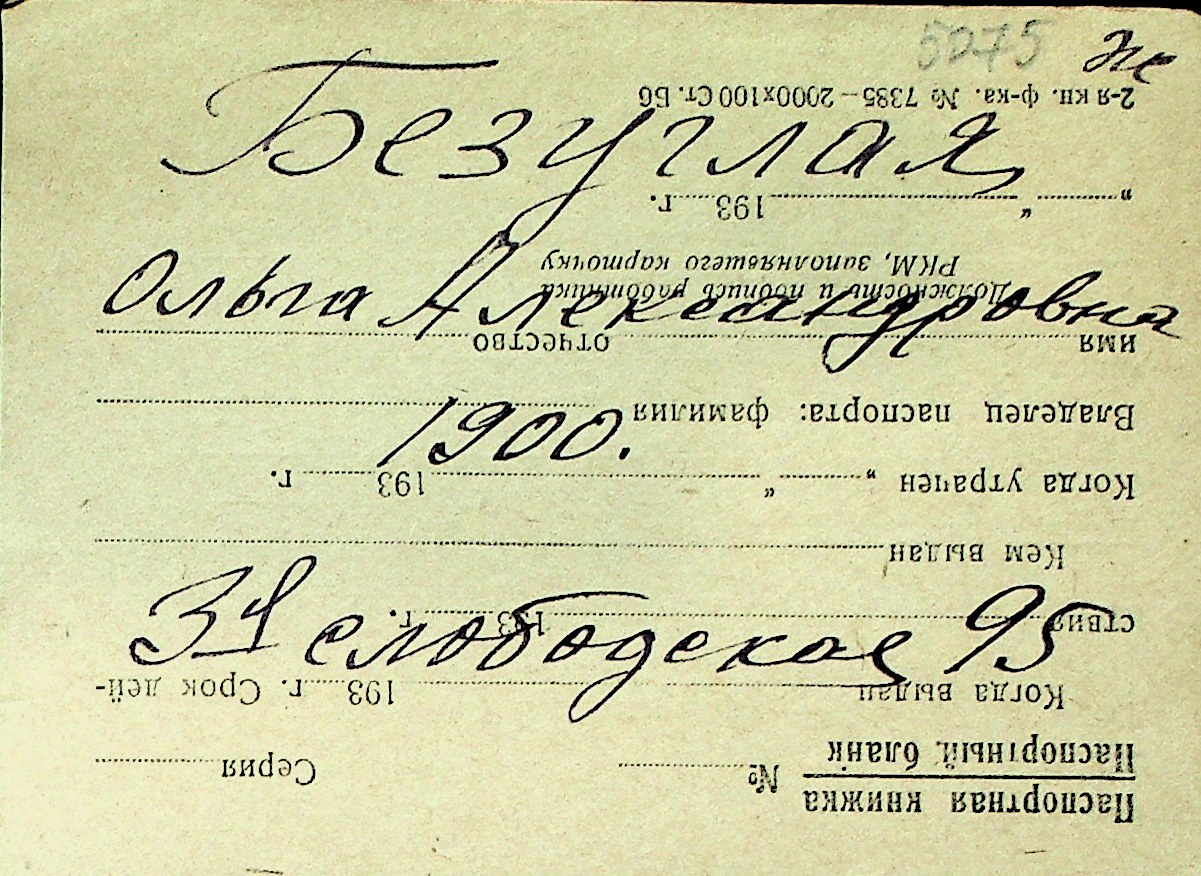 5075 Же
Безуглая
Ольга Александровна
1900.
3я слободская 95
Паспортная книжка
Паспортный бланк
№ Серия
Когда выдан 193 г. Срок дей-
ствия 193 г.
Кем выдан
Когда утрачен „ “ 193 г.
Владелец паспорта: фамилия
имя отчество
Должность и подпись работника
РКМ, заполнявшего карточку
„ “ 193 г.
2-я кн. ф-ка. № 7385—2000х100 Ст. Бб